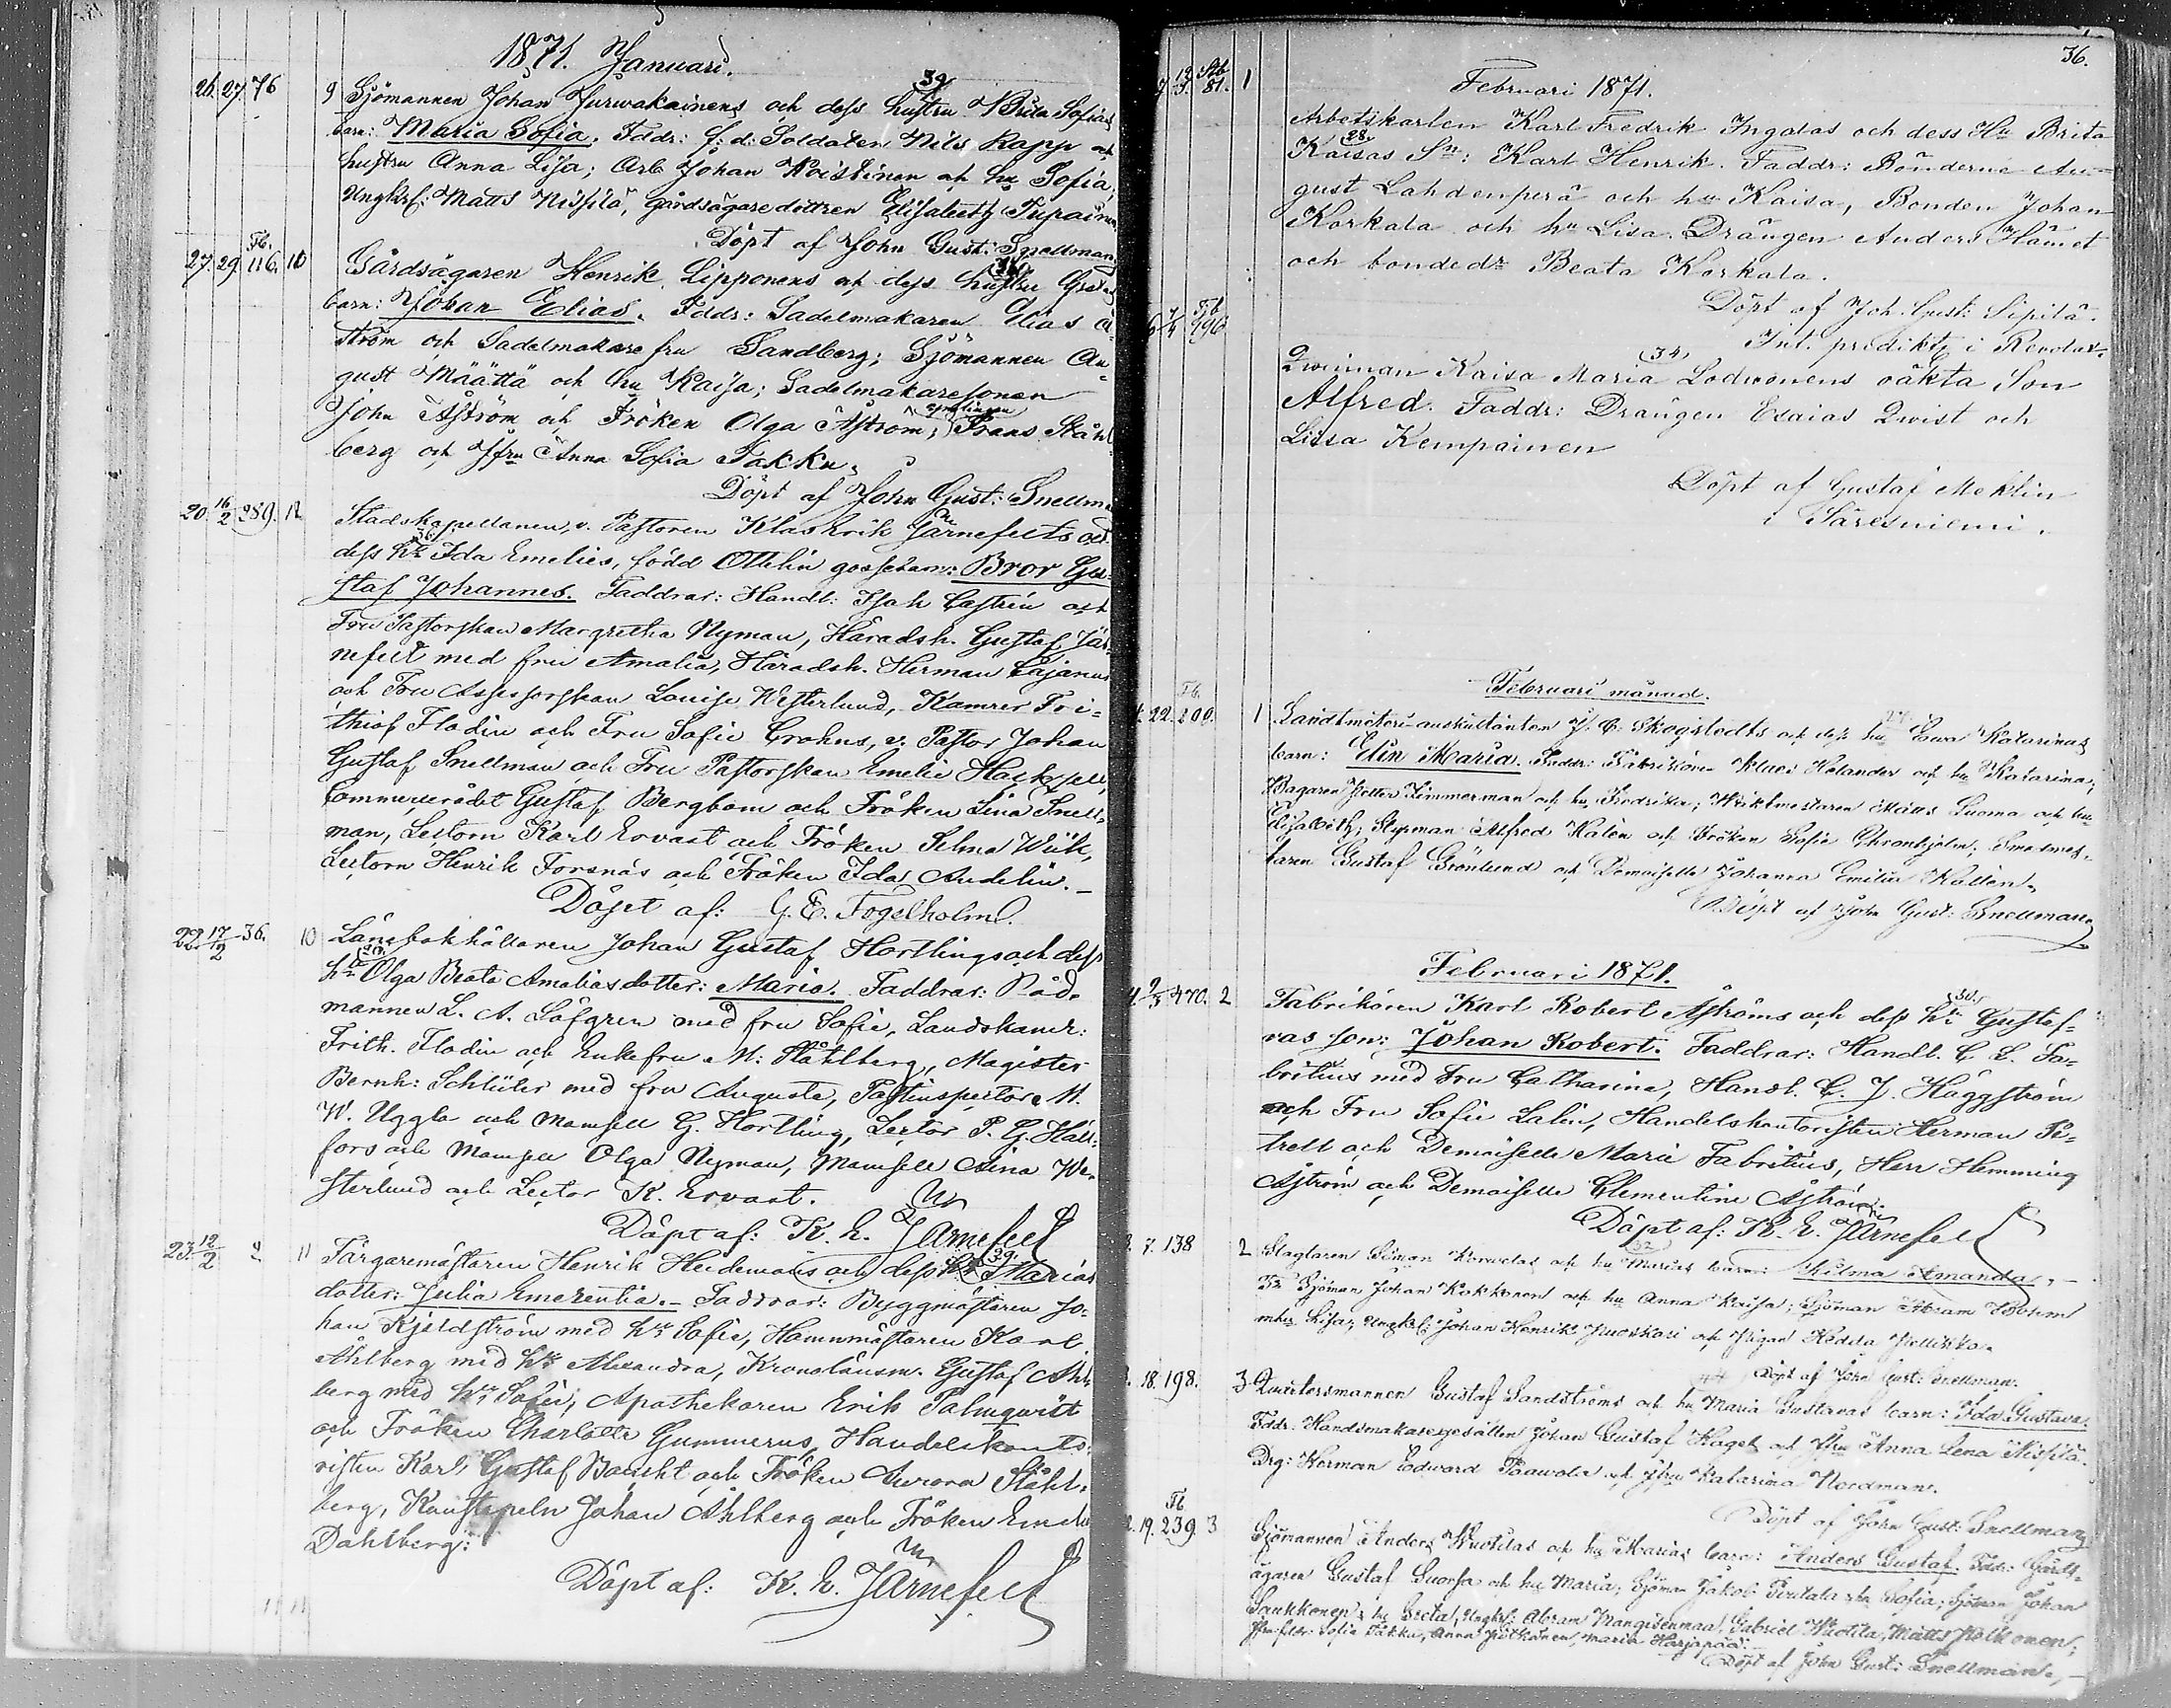 1871. Januari.
26. 27. 76 9 Sjömannen Johan Jurwakainens och dess hustru 39 Brita Sofias
barn: Maria Sofia. Fddr: f: d: Soldaten Nils Rapp och
hustru Anna Lisa; Arb Johan Koistinen och hu Sofia,
Ynglkrl: Matts Nissilä, gårdsägaredottren Elisabeth Tupainen
Döpt af John Gust: Snellman
27. 29. Fb. 116. 10 Gårdsägaren Henrik Lipponens och dess hustru Gretas
barn: Johan Elias. Fddr: Sadelmakaren Elias Å-
ström och Sadelmakare fru Sandberg; Sjömannen Au-
gust Määttä och hu Kaisa; Sadelmakaresonen
John Åström och Fröken Olga Åström; Frans Ståhl-
berg och Jfru Anna Sofia Takku.
Döpt af John Gust: Snellm
20. 16/2 289. 12. Stadskapellanen, v. Pastoren Klas Erik Järnefelts och
dess hu 36 Ida Emelies, född Ottelin gossebarn: Bror Gu-
staf Johannes. Faddrar: Handl: Isak Castrén och
Fru Pastorskan Margretha Nyman, Häradsh. Gustaf Jär-
nefelt med fru Amalia, Häradsh. Herman Cajanus
och Fru Assessorskan Louise Westerlund, Kamrer Fri-
thiof Flodin och Fru Sofie Crohns, v. Pastor Johan
Gustaf Snellman och Fru Pastorskan Emelie Hackzell,
Commerserådet Gustaf Bergbom och Fröken Lina Snell-
man, Lectorn Karl Ervast och Fröken Selma Wiik,
Lectorn Henrik Forsnäs och Fröken Ida Andelin.
Döpt af: G. E. Fogelholm.
22. 17/2 36. 10 Länsbokhållaren Johan Gustaf Hortlings och dess
hu Olga Beata Amalias dotter: Maria. Faddrar: Råd-
mannen L. A. Löfgren med fru Sofie, Landskamr:
Frith. Flodin och Enkefru M: Ståhlberg, Magister
Bernh: Schlüter med fru Augusta, Postinspector M.
W. Uggla och Mamsell G. Hortling, Lector P. G. Häll-
fors och Mamsell Olga Nyman, Mamsell Aina We-
sterlund och Lector K. Ervast.
Döpt af: K. E. Järnefelt
23. 12/2 2 11 Färgaremästaren Henrik Heidemans och dess hu 39. Marias
dotter: Julia Emerentia. Faddrar: Byggmästaren Jo-
han Kjeldström med hu Sofie, Hamnmästaren Karl
Åhlberg med hu Alexandra, Kronolänsm. Gustaf Åhl-
berg med hu Sofie, Apothekaren Erik Palmqwist
och Fröken Charlotta Gummerus, Handelskonto-
risten Karl Gustaf Bascht och Fröken Aurora Ståhl-
berg, Konstapeln Johan Åhlberg och Fröken Emelie
Dahlberg.
Döpt af: K. E. Järnefelt
36.
Februari 1871.
1 Arbetskarlen Karl Fredrik Ingalas och dess Hu Brita
Kaisas 28 Sn: Karl Henrik. Faddr: Bönderne Au-
gust Lahdenperä och hu Kaisa, Bonden Johan
Korkala och hu Lisa. Drängen Anders Hämet
och bondedr Beata Korkala.
Döpt af Joh. Gust: Sipilä.
Int. predikt i Revolax.
Qwinnan Kaisa Maria 34 Lodwonens oäkta Son
Alfred. Faddr: Drängen Esaias Qwist och
Liisa Kempainen
Döpt af Gustaf Meklin
i Säresniemi.
Februari månad.
22. Fb. 200. 1 Landtmäteri-auskultanten J. C. Skogstedts och dess hu Ewa Katarinas
barn: Elin Maria. Faddr: Fabrikören Klas Helander och hu Katarina;
Bagaren Petter Zimmerman och hu Fredrika; Wriktmestaren Matts Suoma och hu
Elisabeth; Styrman Alfred Kalén och Fröken Sofia Ehrenhjelm; Smesmes-
taren Gustaf Grönlund och Demoiselle Johanna Emilia Kallén.
Döpt af John Gust: Snellman
Februari 1871.
4. 9/3 470. 2 Fabrikören Karl Robert Åströms och dess hu 30 Gusta-
vas son: Johan Robert. Faddrar: Handl. C. L. Fa-
britius med Fru Catharina, Handl. C. J. Häggström
och Fru Sofie Lalin, Handelskontoristen Herman Pe-
trell och Demoiselle Maria Fabritius, Herr Hemming
Åström och Demoiselle Clementine Åström.
Döpt af: K. E. Järnefelt
7. 138 2 Slagtaren Simon Korwelas och hu Marias barn: Hilma Amanda.
Fr Sjöman Johan Kokkonen och hu Anna Kaisa; Sjöman Abram
m hu Lisa; Ynglkrl: Johan Henrik Juoskari och Pigan Hedda Pellikka.
Döpt af John Gust: Snellman.
18. 198. 3 Quartersmannen Gustaf Sandströms och hu 44 Maria Gustavas barn: Ida Gustava.
Fddr. Handsmakaregesällen Johan Gustaf Hagel och Jfru Anna Lena Nissilä.
Drg: Herman Edward Paawola och Jfru Katarina Nordman.
Döpt af John Gust: Snellman
19. Fb. 239. 3 Sjömannen Anders Wuotilas och hu Marias barn: Anders Gustaf. Fddr: Gårds-
ägaren Gustaf Suorsa och hu Maria; Sjöman Jakob Pentala och hu Sofia; Sjöman Johan
Saukkonen & hu Greta, Ynglkrl: Abram Kangisenmaa, Gabriel Wuotila, Matts Pelkonen;
Jfrufddr: Sofia Takku, Anna Pätkänen, Maria Harjapää.
Döpt af John Gust: Snellman.